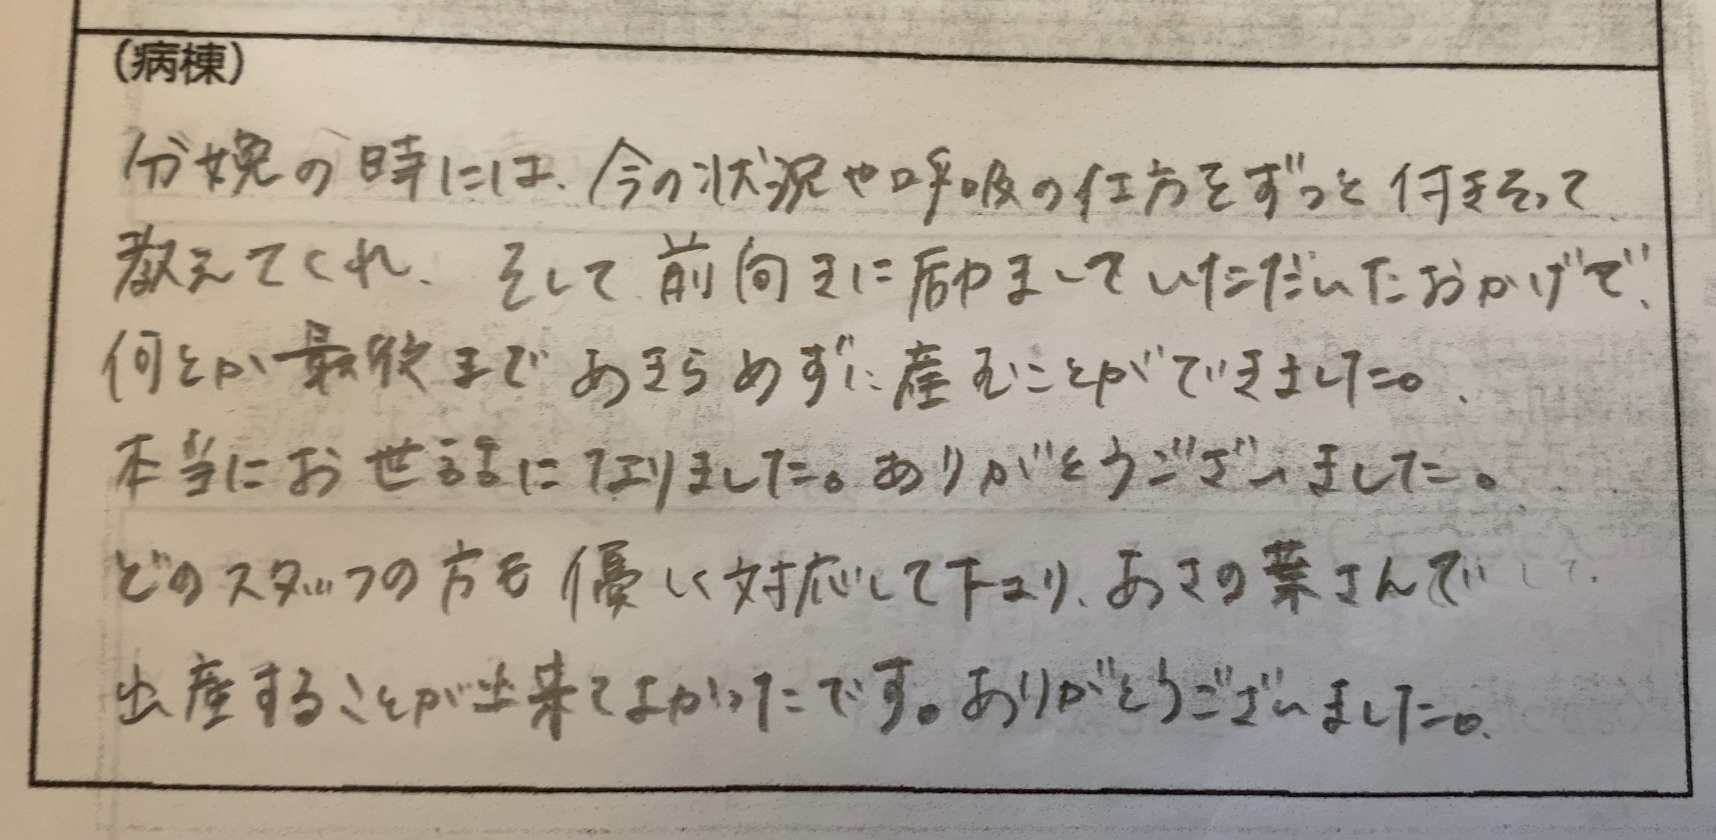 (病棟)
分娩の時には、今の状況や呼吸の仕方をずっと付きそって
教えてくれ、そして前向きに励ましていただいたおかげで、
何とか最後まであきらめずに産むことができました。
本当にお世話になりました。ありがとうございました。
どのスタッフの方も優しく対応して下さり、あさの葉さんで
出産することが出来てよかったです。ありがとうございました。